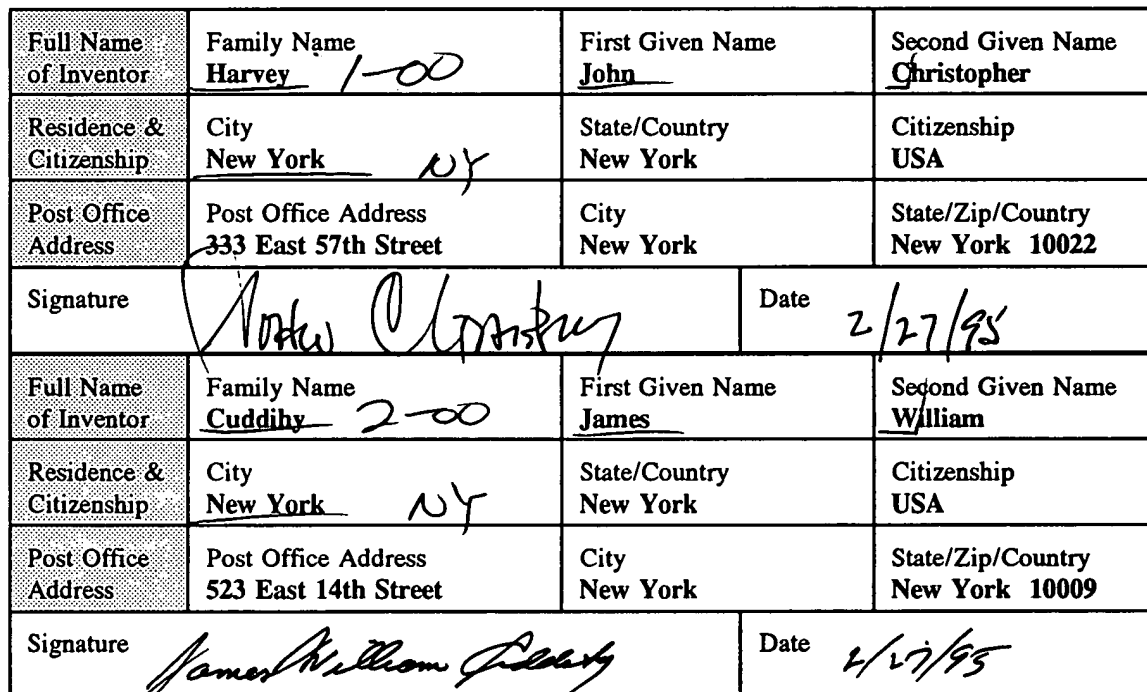 Full Name of Inventor
Family Name
Harvey 1-00
First Given Name
John
Second Given Name
Christopher
Residence & Citizenship
City
New York NY
State/Country
New York
Citizenship
USA
Post Office Address
Post Office Address
333 East 57th Street
City
New York
State/Zip/Country
New York 10022
Signature
Date 2/27/95
Full Name of Inventor
Family Name
Cuddihy 2-00
First Given Name
James
Second Given Name
William
Residence & Citizenship
City
New York NY
State/Country
New York
Citizenship
USA
Post Office Address
Post Office Address
523 East 14th Street
City
New York
State/Zip/Country
New York 10009
Signature James William Cuddihy
Date 2/27/95